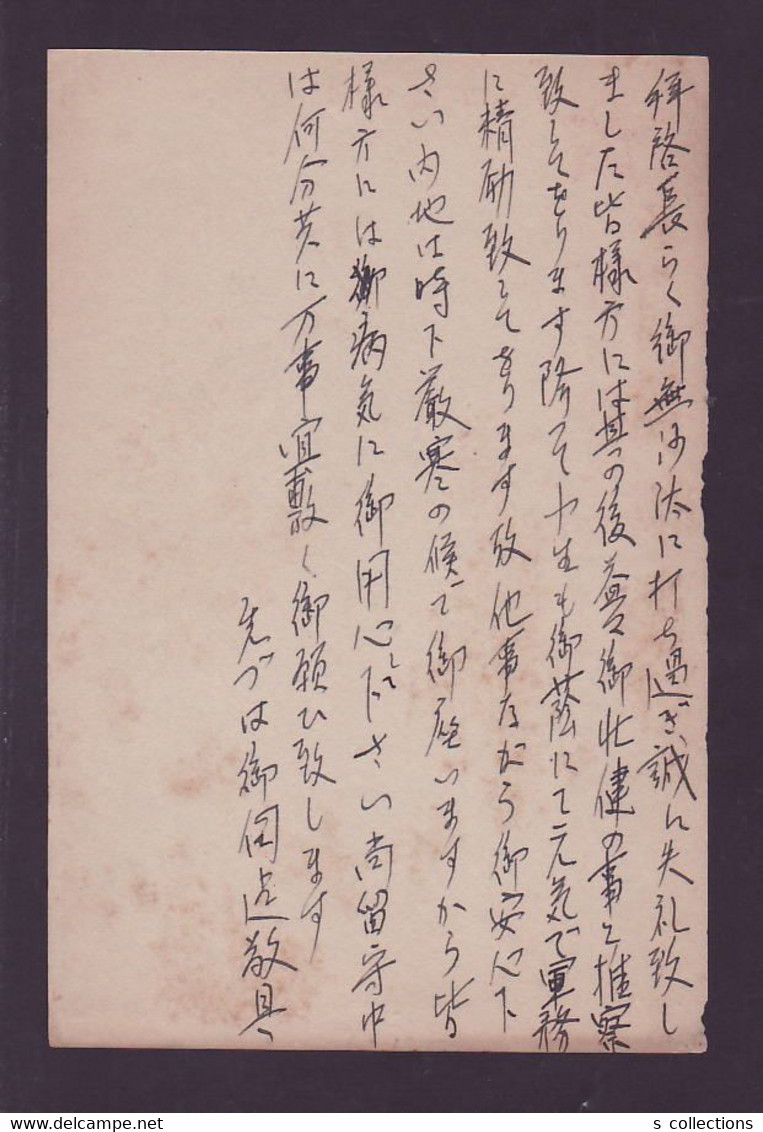 拝啓長らく御無沙汰に打ち過ぎ誠に失礼致し
ました皆様方には其の後益々御壮健の事と推察
致してをります降って小生も御蔭にて元気で軍務
に精励致してをります故他事ながら御安心下
さい内地は時下厳寒の候で御座いますから皆
様方には御病気に御用心して下さい尚留守中
は何分共に万事宜敷く御願ひ致します
先づは御伺迄敬具
s collections